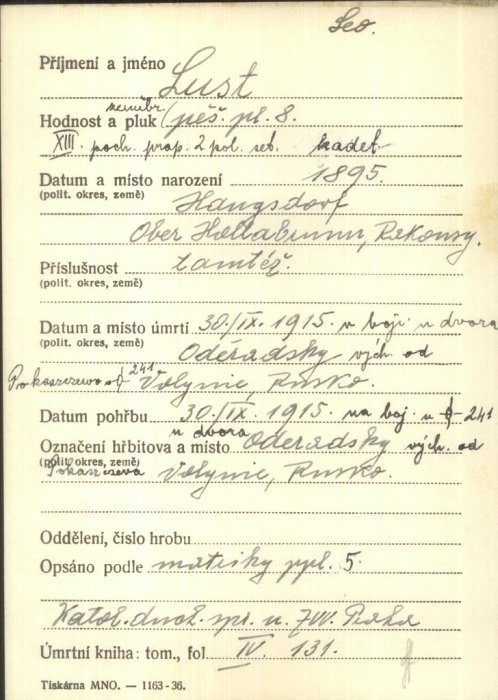 Leo.
Příjmení a jméno Lust
zeměbr.
Hodnost a pluk (pěš. pl. 8.
XIII. poch. prap. 2 pol. set. kadet
Datum a místo narození 1895.
(polit. okres, země) Haugsdorf
Ober Hollabrunn, Rakousy.
Příslušnost tamtéž.
(polit. okres, země)
Datum a místo úmrtí 30./IX. 1915. v boji u dvora
(polit. okres, země) Oděradsky vých. od
Pokaszczewo 241 Volynie, Rusko.
Datum pohřbu 30./IX. 1915. na boj. u 241
u dvora
Označení hřbitova a místo Oderadsky vých. od
(polit. okres, země)
Pokaszczeva Volynie, Rusko.
Oddělení, číslo hrobu
Opsáno podle matriky ppl. 5.
Katol. duch. spr. u ZVV. Praha
Úmrtní kniha: tom., fol. IV. 131.
Tiskárna MNO. — 1163-36.